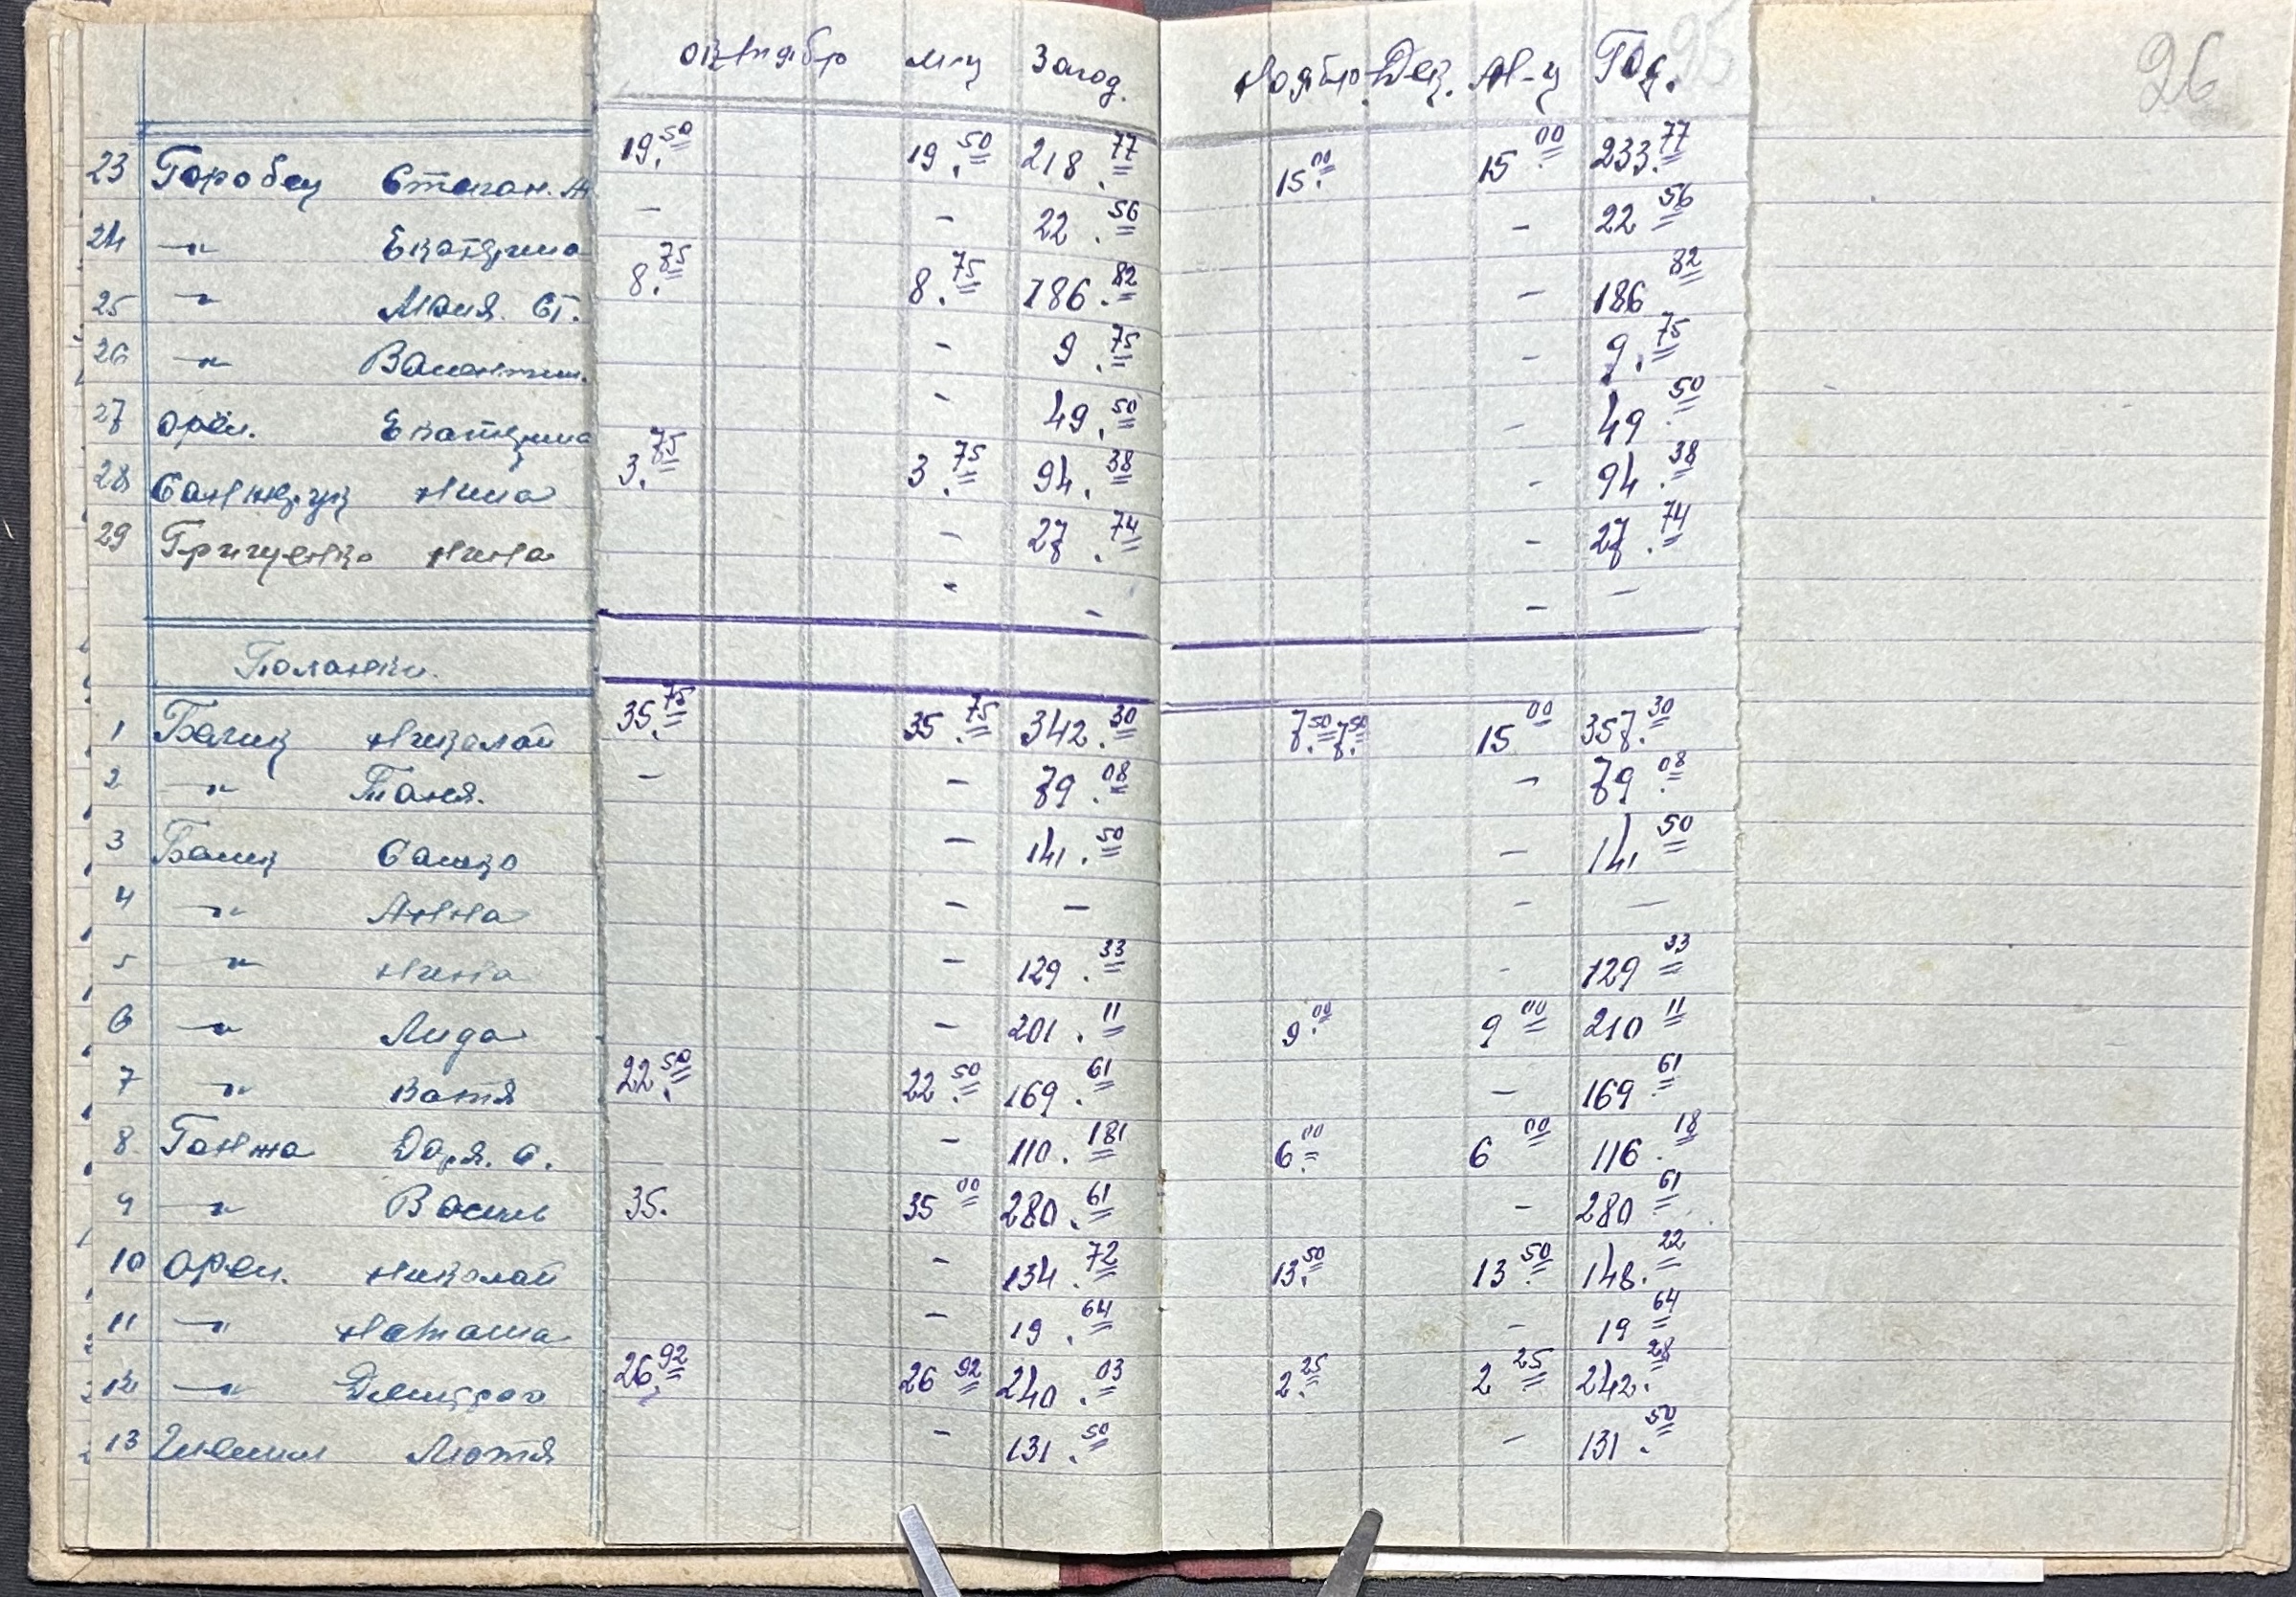 октябрь м-ц За год. Ноябрь. Дек. М-ц Год. 95 26
23 Горобец Степан. А 19.50 19.50 218.77 15.00 15.00 233.77
24 —"— Екатерина — — 22.56 — 22 56
25 —"— Маня. Ст. 8.75 8.75 186.82 — 186 82
26 —"— Валентин. — 9.75 — 9.75
27 Орел. Екатерина — 49.50 — 49.50
28 Нина 3.75 3.75 94.38 — 94.38
29 Грищенко Нина — 27.74 — 27.74
— — — —
1 Николай 35.75 35.75 342.30 7.50 7.50 15 00 357.30
2 —"— Таня. — — 79.08 — 79.08
3 Сашко — 141.50 — 141 50
4 —"— Анна — — — —
5 —"— Нина — 129.33 — 129 33
6 —"— Лида — 201.11 9.00 9 00 210 11
7 —"— Катя 22.50 22.50 169.61 — 169 61
8 Ганжа Даря. С. — 110.181 6.00 6 00 116.18
9 —"— Василь 35. 35 00 280.61 — 280 61
10 Орел. Николай — 134.72 13.50 13.50 148.22
11 —"— Наташа — 19.64 — 19 64
12 —"— Дмитро 26 92 26 92 240.03 2.25 2 25 242.28
13 Мотя — 131.50 — 131.50